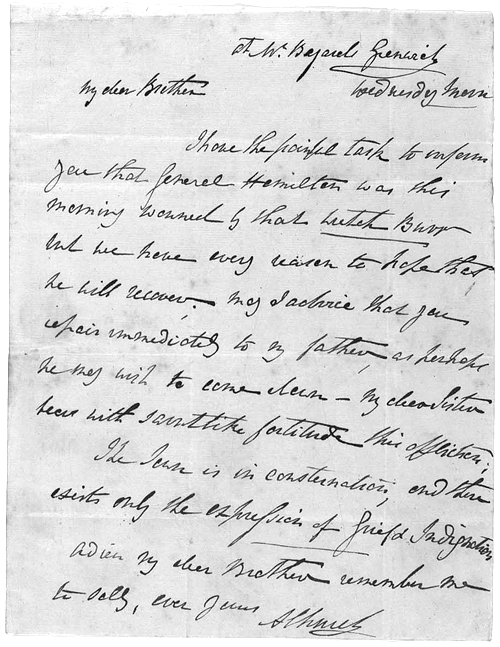 At Mr. Bayards Greenwich
Wednesday Morn
My dear Brother
I have the painful task to inform
you that General Hamilton was this
morning wounded by that wretch Burr
but we have every reason to hope that
he will recover. May I advice that you
repair immediately to my father, as perhaps
he may wish to come down — My dear Sister
bears with saintlike fortitude this affliction;
The Town is in consternation, and there
exists only the expression of Grief & Indignation
adieu my dear Brother remember me
to Sally, ever yours
AChurch